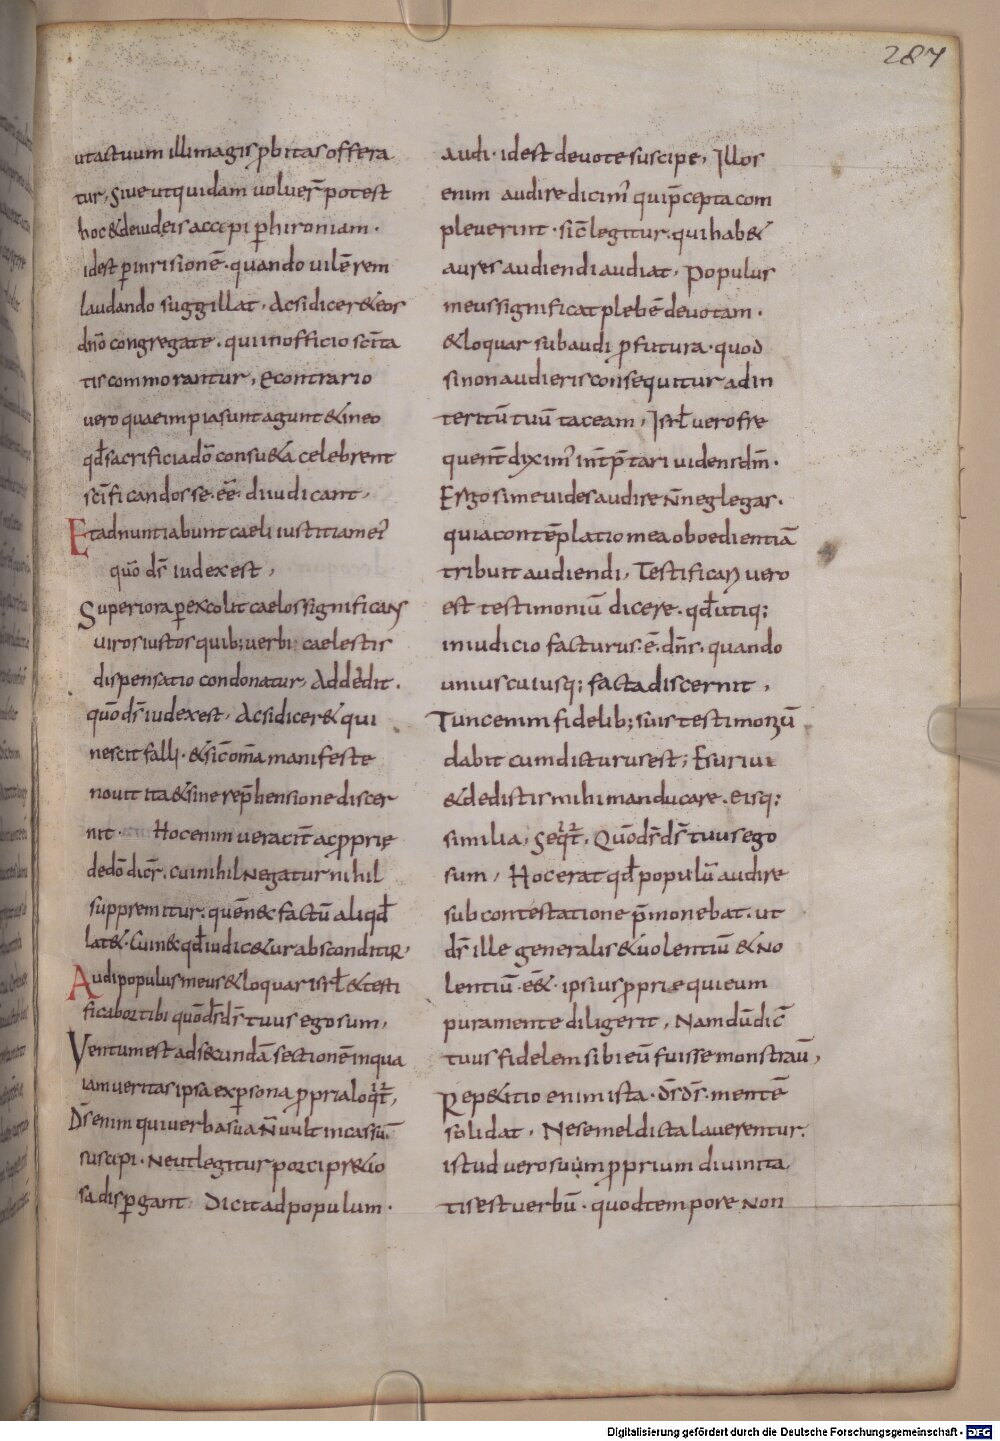 287
utactuum illi magis ꝓbitas offera
tur, Siue ut quidam uoluer̄ potest
hoc & deiudeis accepi ꝑ hironiam·
idest ꝑ inrisionē· quando uilē rem
laudando suggillat, Acsi dicer& eos
dn̄o congregate· qui in officio sc̄ita
tis commorantur, Econtrario
uero quae impia sunt agunt & in eo
qđ sacrificia dō consu&a celebrent
sc̄ificandos se·eē· diiudicant,
Et adnuntiabunt caeli iustitiam ei'
quō ds̄ iudex est,
Superiora ꝑ excolit caelos significans
uiros iustos quib; uerbi caelestis
dispensatio condonatur, Addedit·
quō ds̄ iudex est, Acsi dicer& qui
nescit falli· & sic om̄a manifeste
nouit ita & sine rep̄hensione discer
nit· Hoc enim ueracit̄ ac ꝓprie
dedō dicr̄, cui nihil Negatur nihil
supprimitur, quē nec factū aliqđ
lat&· Cui nec qđ iudic&ur absconditur,
Audi populus meus & loquar isrł & testi
ficabor tibi quōds̄ ds̄ tuus ego sum,
Ventum est ad secundā sectionē in qua
iam ueritas ipsa ex ꝑsona ꝓpria loqt̄,
Ds̄ enim qui uerba sua n̄ uult incassū
suscipi· Ne ut legitur porci pr&io
sa disꝑgant, Dicit ad populum·
audi· idest deuote suscipe, Illos
enim audire dicim' qui p̄cepta com
pleuerint· sic̄ legitur, qui hab&
aures audiendi audiat, Populus
meus significat plebē deuotam·
& loquar subaudi ꝓfutura· quod
si non audieris consequitur ad in
teritū tuū taceam, Isrł uero fre
quent̄ dixim' int̄p̄tari uidens dm̄·
Ergo si me uides audire n̄ neglegas·
quia contēplatio mea oboedientiā
tribuit audiendi, Testificari uero
est testimoniū dicere· qđ utiq;
in iudicio facturus·ē· dn̄s· quando
uniuscuiusq; facta discernit,
Tunc enim fidelib; suis testimoniū
dabit cum dicturus est; Esuriui
& dedistis mihi manducare· eisq;
similia, Seqt̄, Quō ds̄ ds̄ tuus ego
sum, Hoc erat qđ populū audire
sub contestatione p̄monebat· ut
ds̄ ille generalis & uolentiū & No
lentiū·e&· ipsius ꝓprie qui eum
pura mente diligerit, Nam dū dic̄
tuus fidelem sibi eū fuisse monstrau̅,
Rep&itio enim ista· ds̄ ds̄· mentē
solidat, Ne semel dicta lauerentur·
istud uero suum ꝓprium diuinita
tis est uerbū· quod tempore Non
Digitalisierung gefördert durch die Deutsche Forschungsgemeinschaft - DFG